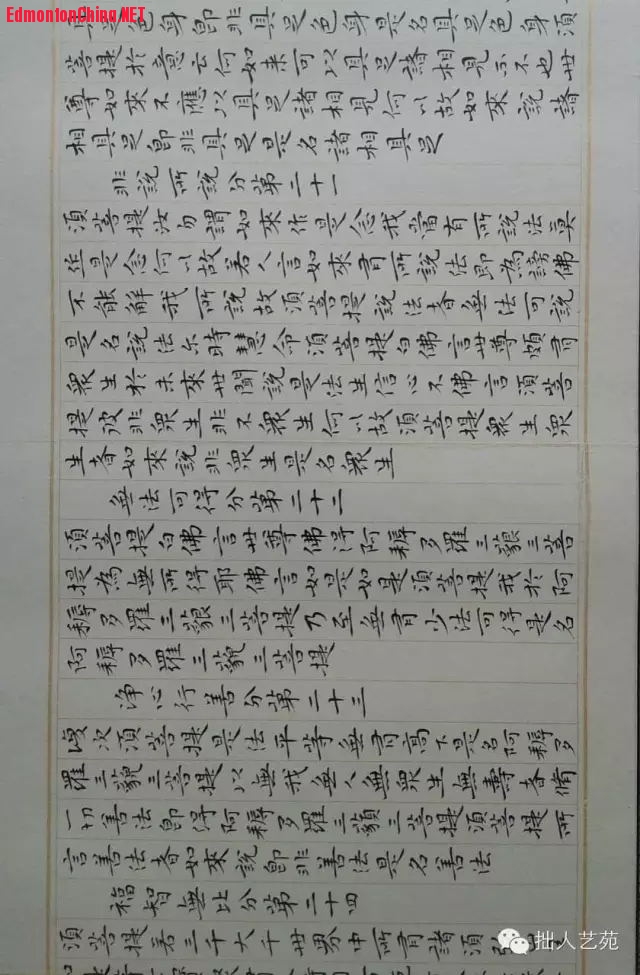 EdmontonChina.NET
具足色身即非具足色身是名具足色身須
菩提於意云何如来可以具足諸相見不不也世
尊如來不應以具足諸相見何以故如來說諸
相具足即非具足是名諸相具足
非說所說分第二十一
須菩提汝勿謂如來作是念我當有所說法莫
作是念何以故若人言如來有所說法即為謗佛
不能解我所說故須菩提說法者無法可說
是名說法尔時慧命須菩提白佛言世尊頗有
衆生於未來世聞說是法生信心不佛言須菩
提彼非衆生非不衆生何以故須菩提衆生衆
生者如來說非衆生是名衆生
無法可得分第二十二
須菩提白佛言世尊佛得阿耨多羅三藐三菩
提為無所得耶佛言如是如是須菩提我於阿
耨多羅三藐三菩提乃至無有少法可得是名
阿耨多羅三藐三菩提
净心行善分第二十三
復次須菩提是法平等無有高下是名阿耨多
羅三藐三菩提以無我無人無衆生無壽者脩
一切善法即得阿耨多羅三藐三菩提須菩提所
言善法者如來說即非善法是名善法
福智無比分第二十四
須菩提若三千大千世界中所有諸須弥
拙人艺苑